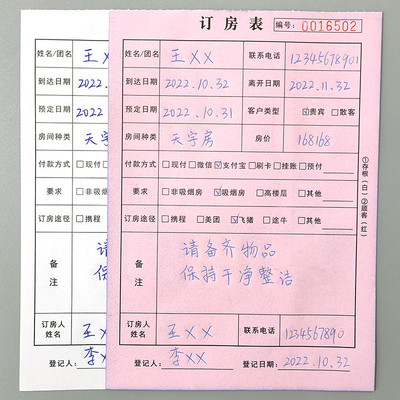 订房表 编号：0016502
姓名/团名 王×× 联系电话 12345678901
到达日期 2022.10.32 离开日期 2022.11.32
预定日期 2022.10.31 客户类型 ☑贵宾 □散客
房间种类 天字房 房价 168168
付款方式 □现付 □微信 ☑支付宝 □刷卡 □挂账 □预付
要求 □非吸烟房 ☑吸烟房 □高楼层 □其他
订房途径 □携程 □美团 ☑飞猪 □途牛 □其他
备注 请备齐物品
保持干净整洁
订房人姓名 王×× 联系电话 1234567890
登记人： 李×× 登记日期： 2022.10.32
①存根（白）②顾客（红）
姓名/团名 王
到达日期 2022
预定日期 2022
房间种类 天字
付款方式 □现付
要求 □非吸烟
订房途径 □携程
备注 请
保
订房人姓名 王×
登记人： 李×